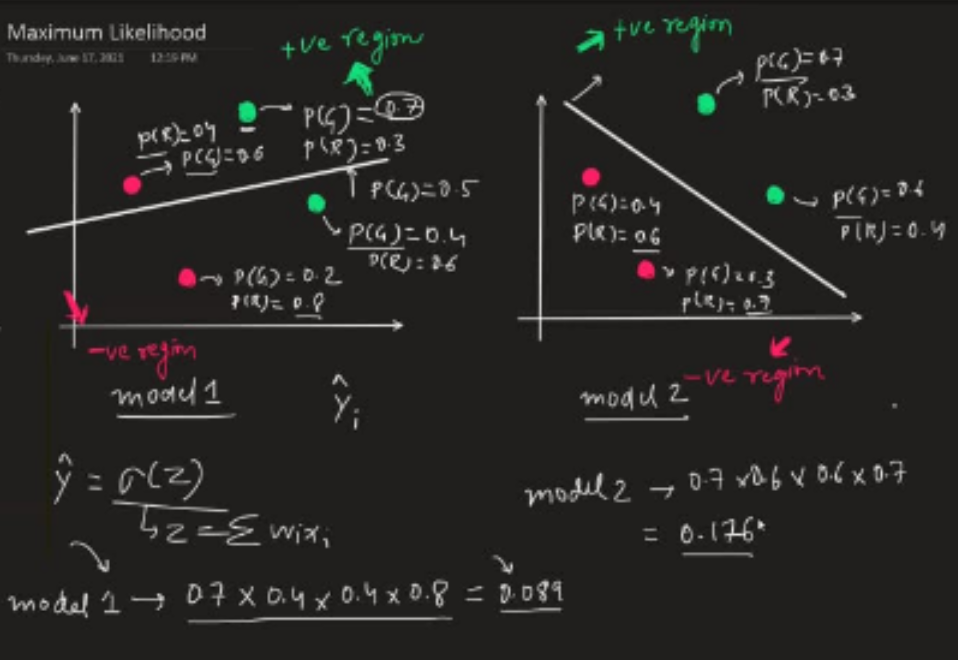 Maximum Likelihood
Thursday, June 17, 2021 12:19 PM
+ve region
P(G)=0.7
P(R)=0.3
P(R)=0.4
P(G)=0.6
P(G)=0.5
P(G)=0.4
P(R)=0.6
P(G)=0.2
P(R)=0.8
-ve region
model 1
ŷi
+ve region
P(G)=0.7
P(R)=0.3
P(G)=0.4
P(R)=0.6
P(G)=0.6
P(R)=0.4
P(G)=0.3
P(R)=0.7
-ve region
model 2
ŷ = σ(z)
↳ z = Σ wixi
model 2 → 0.7 x 0.6 x 0.6 x 0.7
= 0.176
model 1 → 0.7 x 0.4 x 0.4 x 0.8 = 0.089